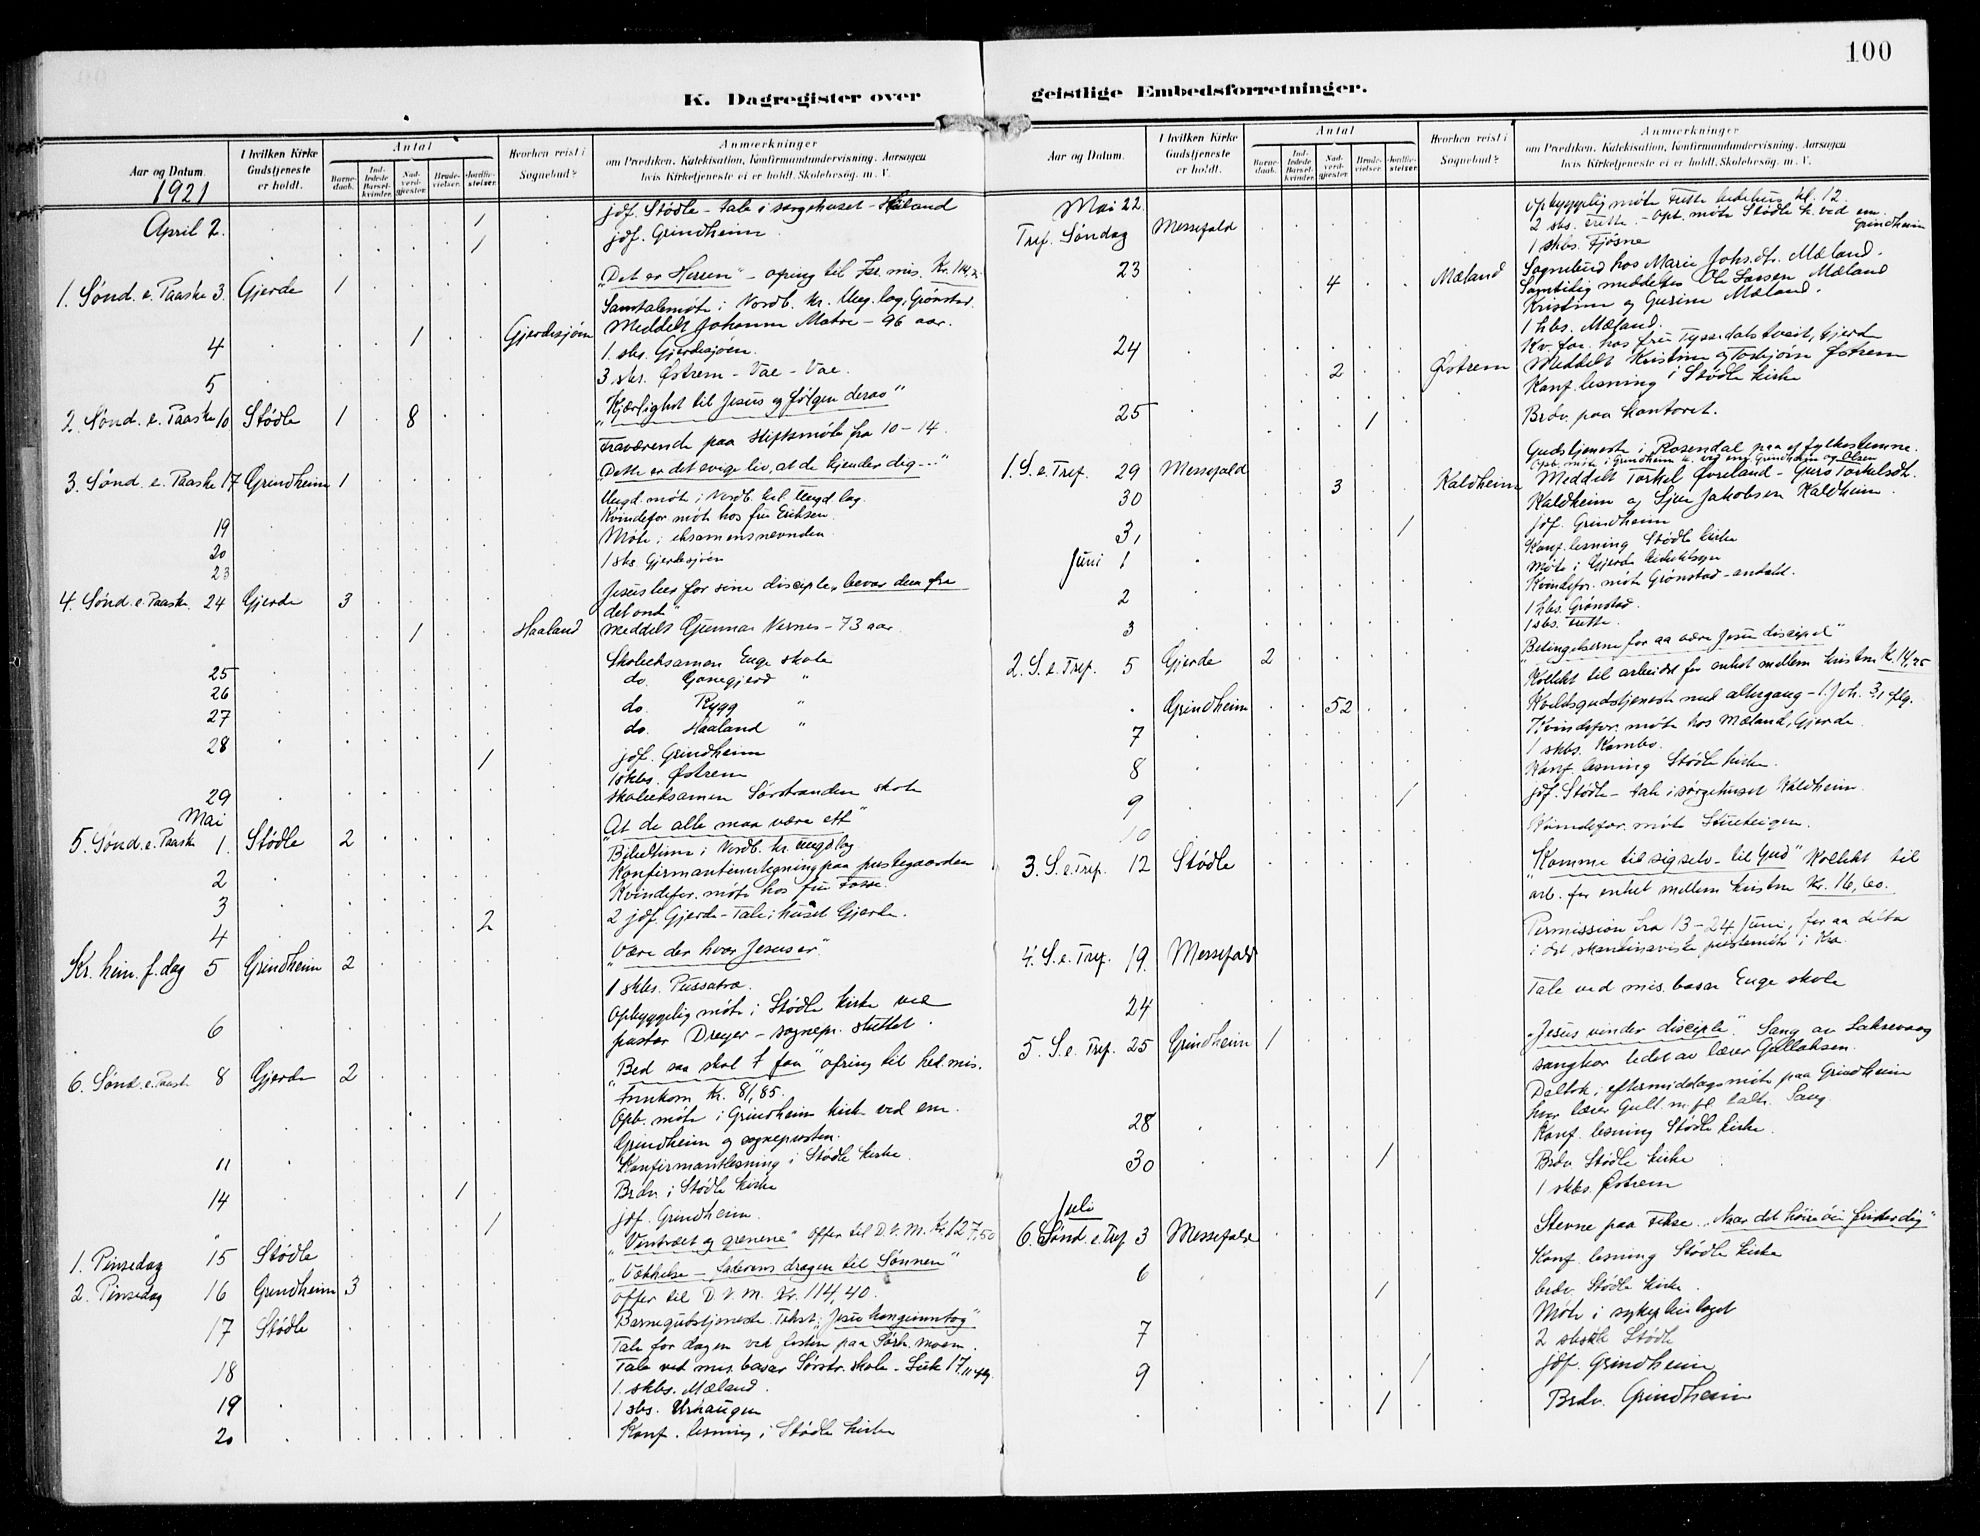 100
K. Dagregister over geistlige Embedsforretninger.
Aar og Datum.
I hvilken Kirke Gudstjeneste er holdt.
Antal
Barne-daab.
Ind-ledede Barsel-kvinder.
Nad-verd-gjester
Brude-vielser.
Jordfæ-stelser.
Hvorhen reist i Sognebud?
Anmærkninger
om Prædiken. Katekisation, Konfirmandundervisning. Aarsagen
hvis Kirketjeneste ei er holdt. Skolebesøg. m. V.
1921
April 2. 1 jdf. Stødle - tale i sørgehuset - Håland
1 jdf. Grindheim
1. Sønd. e. Paaske 3. Gjerde 1 "Det er Herren" - ofring til Isr. mis. Kr.
Samtalemøte i Nordb. kr. Ung. lag, Grønstad.
4 1 Gjerdesjøen Meddelt Johanne Matre - 96 aar.
1. sbs. Gjerdesjøen.
5 3 sbs. Østrem - Vae - Vae.
2. Sønd. e. Paaske 10 Stødle 1 8 "Kjærlighet til Jesus og følgen derav"
Fraværende paa stiftsmøte fra 10-14.
3. Sønd. e. Paaske 17 Grindheim 1 "Dette er det evige liv, at de kjender dig -"
Ungd. møte i Nordb. kr. Ungd. lag.
19 Kvindefor. møte hos fru Eriksen.
20 Møte i eksamensnevnden
23 1 sbs Gjerdesjøen
4. Sønd. e. Paaske. 24 Gjerde 3 Jesus ber for sine disciple, "bevar dem fra
det onde"
" 1 Haaland meddelt Gunnar Vernes - 73 aar.
25 Skoleeksamen Enge skole
26 do. Gonegjerd "
27 do. Rygg "
28 do. Haaland "
1 jdf. Grindheim
1 skbs. Østrem
29 skoleeksamen Sørstranden skole
Mai
5. Sønd. e. Paaske 1. Stødle 2 "At de alle maa være ett"
Bibeltime i Nordb. kr. ungd. lag.
2 Konfirmantinnlegning paa prestegaarden
3 Kvindefor. møte hos fru Fosse.
4 2 2 jdf. Gjerde - Tale i huset Gjerde.
Kr. him. f. dag 5 Grindheim 2 "Være der hvor Jesus er"
1 skbs. Tussatra.
6 opbyggelig møte i Stødle kirke ved
pastor Dreyer - sognepr. sluttet.
6. Sønd. e. Paaske 8 Gjerde 2 "Bed saa skal I faa" ofring til hed. mis.
Innkom kr. 81,85.
Opb. møte i Grindheim kirke ved em.
Grindheim og sognepresten.
11 Konfirmantlesning i Stødle kirke
14 1 Brdv. i Stødle kirke
" 1 jdf. Grindheim.
1. Pinsedag 15 Stødle "Vintræet og grenene" offer til D. V. M. Kr. 127,50
2. Pinsedag 16 Grindheim 3 "Vækkelse - Faderens dragen til Sønnen"
offer til D. V. M. Kr. 114,40.
17 Stødle Barnegudstjeneste. Tekst: "Jesu kongeinntog"
Tale for dagen ved festen paa Sørh. moen.
18 Tale ved mis. basar Sørstr. skole - Luk 17, 11 flg.
1. skbs. Mæland.
19 1 sbs. Urhaugen
20 Konf. lesning i Stødle kirke
Aar og Datum.
I hvilken Kirke Gudstjeneste er holdt.
Antal
Barne-daab.
Ind-ledede Barsel-kvinder.
Nad-verd-gjester
Brude-vielser.
Jordfæ-stelser.
Hvorhen reist i Sognebud?
Anmærkninger
om Prædiken. Katekisation, Konfirmandundervisning. Aarsagen
hvis Kirketjeneste ei er holdt. Skolebesøg. m. V.
Mai 22. opbyggelig møte Fitte bedehus kl. 12.
Tref. Søndag Messefald 2 sbs. - Opb. møte Stødle k. ved em. Grindheim
1 skbs. Fjøsne
23 4 Mæland Sognebud hos Marie Johs.dtr. Mæland.
Samtidig meddeltes Ole Larsen Mæland
Kristine og Gurine Mæland.
1 hbs. Mæland.
24 Kv. for. hos fru Tyssedalstveit, Gjerde
2 Østrem Meddelt Kristine og Torbjørn Østrem
Konf. lesning i Stødle kirke
25 1 Brdv. paa kontoret.
1. S. e. Tref. 29 Messefald Gudstjeneste i Rosendal paa fylkesstemne.
Opb. møte i Grindheim k. ved em. Grindheim og Olsen
30 3 Kaldheim Meddelt Torkel Øvreland - Guro Torkelsdt.
Kaldheim og Sjur Jakobsen Kaldheim.
31 1 jdf. Grindheim
Konf. lesning Stødle kirke
Juni 1 Møte i Gjerde bedehus
Kvindefor. møte Grønstad - andakt.
2 1 hbs. Grønstad.
3 1 sbs.
2. S. e. Tref. 5 Gjerde 2 "Betingelserne for aa være Jesu discipel"
Kollekt til arbeidet for enhet mellem kristne Kr. 14,75
Grindheim 52 Kveldsgudstjeneste med altergang - 1. Joh. 3,1 flg.
7 Kvindefor. møte hos Mæland, Gjerde.
1 skbs. Kambo.
8 Konf. lesning Stødle kirke.
9 1 jdf. Stødle - tale i sørgehuset Kaldheim.
10 Kvindefor. møte Stueteigen.
3. S. e. Tref. 12 Stødle "Komme til sig selv - til Gud" Kollekt til
arb. for enhet mellem kristne Kr. 16,60.
Permission fra 13-24 Juni, for aa delta
4. S. e. Tref. 19. Messefald i det skandinaviske prestemøte i Kra.
24 Tale ved mis. basar Enge skole
5. S. e. Tref. 25 Grindheim 1 "Jesus vinder disciple". Sang av Laksevaag
sangkor ledet av lærer Gullaksen.
Deltok i eftermiddagsmøte paa Grindheim
hvor lærer Gull. m. fl. talte. Sang.
28 Konf. lesning Stødle kirke.
30 1 Brdv. Stødle kirke
1 skbs. Østrem
Juli
6. Sønd. e. Tref. 3 Messefald Stevne paa Fitje. "Naar det høire øie frister dig"
6 Konf. lesning Stødle kirke
1 brdv. Stødle kirke.
7 Møte i sykepleielaget
2 sbs Stødle
9 1 jdf. Grindheim
1 Brdv. Grindheim